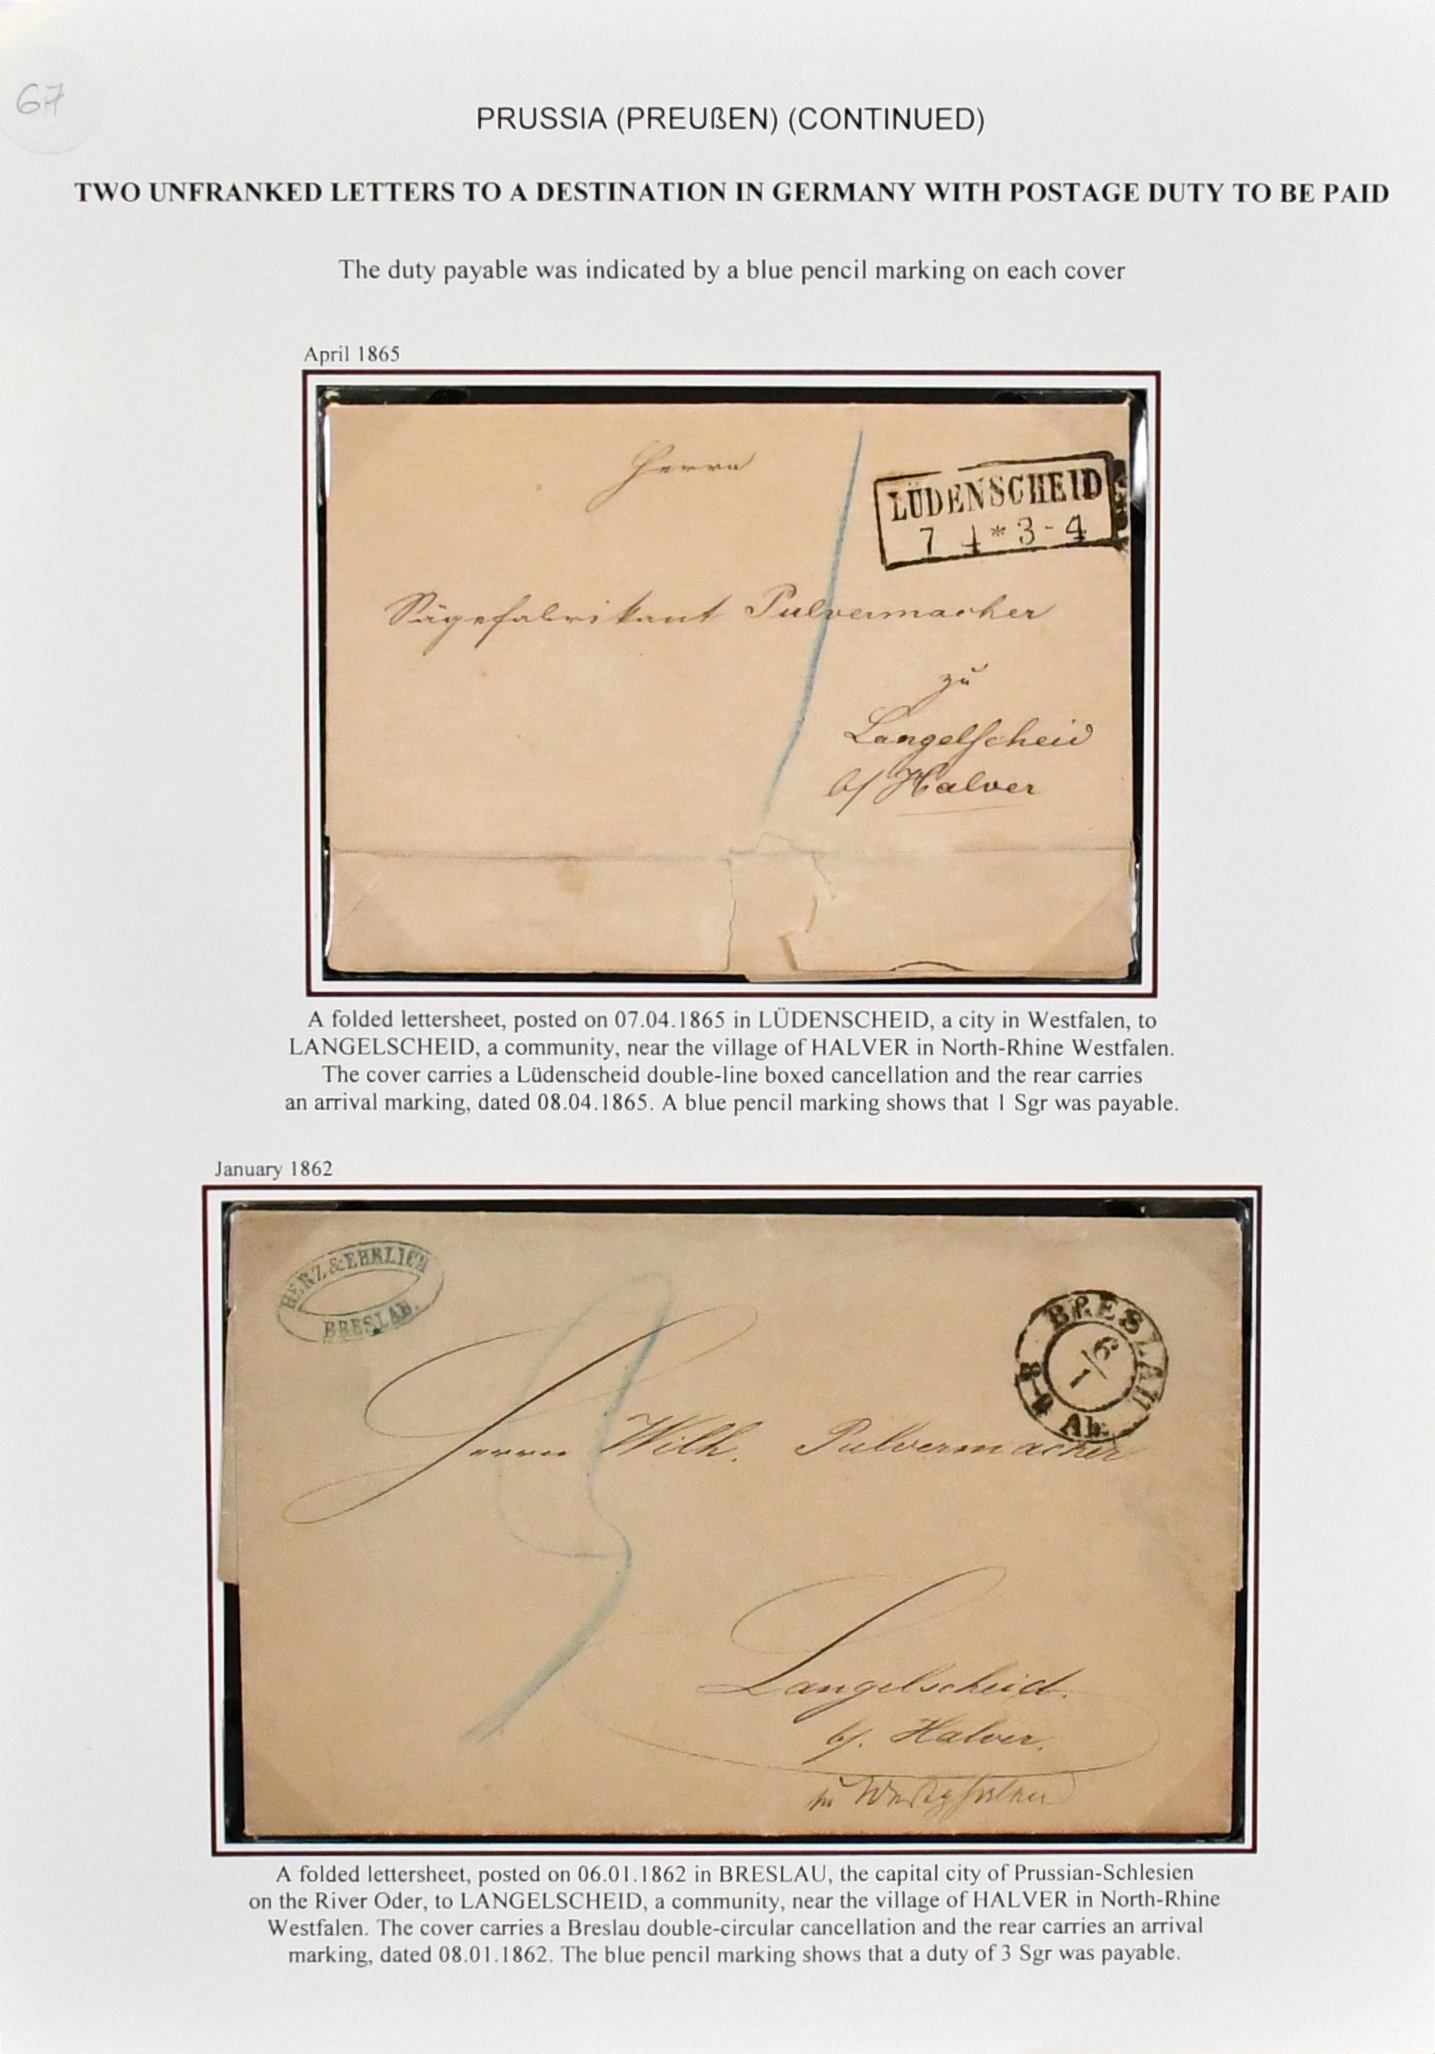 67
PRUSSIA (PREUßEN) (CONTINUED)
TWO UNFRANKED LETTERS TO A DESTINATION IN GERMANY WITH POSTAGE DUTY TO BE PAID
The duty payable was indicated by a blue pencil marking on each cover
April 1865
Herrn
LÜDENSCHEID
7 4 * 3 - 4
Sägefabrikant Pulvermacher
zu
Langelscheid
b/ Halver
A folded lettersheet, posted on 07.04.1865 in LÜDENSCHEID, a city in Westfalen, to
LANGELSCHEID, a community, near the village of HALVER in North-Rhine Westfalen.
The cover carries a Lüdenscheid double-line boxed cancellation and the rear carries
an arrival marking, dated 08.04.1865. A blue pencil marking shows that 1 Sgr was payable.
January 1862
HERZ & EHRLICH
BRESLAU.
BRESLAU
6/1
Ab.
Herrn Wilh. Pulvermacher
3
Langelscheid.
b/. Halver.
in Westphalen
A folded lettersheet, posted on 06.01.1862 in BRESLAU, the capital city of Prussian-Schlesien
on the River Oder, to LANGELSCHEID, a community, near the village of HALVER in North-Rhine
Westfalen. The cover carries a Breslau double-circular cancellation and the rear carries an arrival
marking, dated 08.01.1862. The blue pencil marking shows that a duty of 3 Sgr was payable.